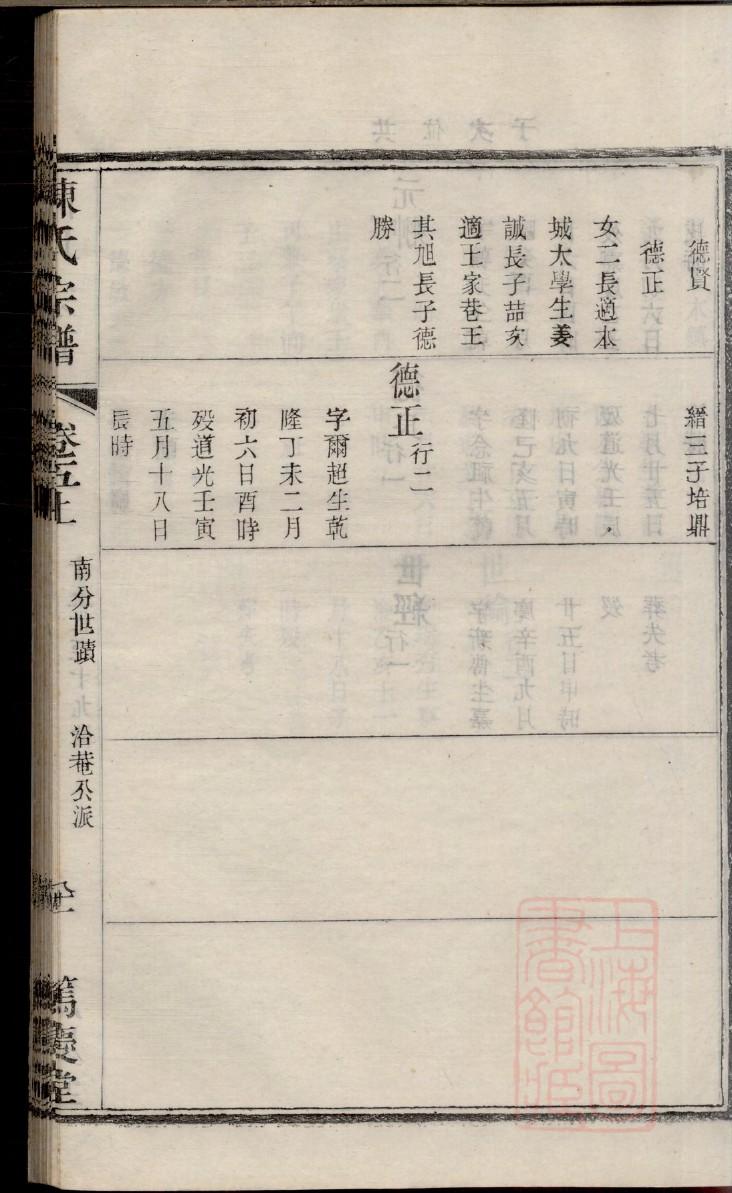 德賢
德正
女二長適本
城太學生姜
誠長子喆次
適王家巷王
其旭長子德
勝
縉三子培鼎
德正行二
字爾超生乾
隆丁未二月
初六日酉時
歿道光壬寅
五月十八日
辰時
陳氏宗譜
卷五上
南分世蹟
洽菴公派
篤慶堂
上海圖
書館藏